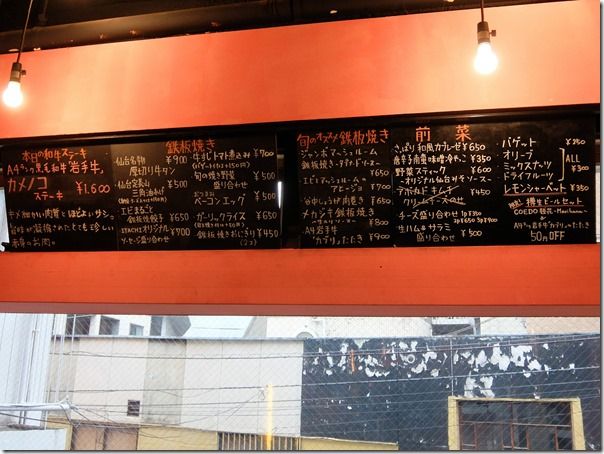 本日の和牛ステーキ
A4ランク黒毛和牛岩手牛
カメノコ
ステーキ ¥1.600
キメ細かい肉質とほどよいサシ。
旨味が凝縮されたとても珍しい
赤身のお肉。
鉄板焼き
仙台名物 ¥900
厚切り牛タン
仙台定義山 ¥550
三角油あげ
エビまるごと
鉄板餃子 ¥650
ITACHIオリジナル ¥700
ソーセージ盛り合わせ
牛すじトマト煮込み ¥700
(バゲット付き+¥150)
旬の焼き野菜 ¥500
盛り合わせ
ベーコンエッグ ¥500
ガーリックライス ¥650
鉄板焼きおにぎり ¥450
(2コ)
旬のオススメ鉄板焼き
ジャンボマッシュルーム
¥700
エビとマッシュルームの
アヒージョ ¥700
¥600
メカジキ鉄板焼
¥800
A4岩手牛
"カブリ"たたき ¥900
前菜
さっぱり和風カプレーゼ ¥650
唐辛子南蛮味噌冷やっこ ¥350
野菜スティック ¥600
-オリジナル仙台味噌ソース-
クリームチーズ
チーズ盛り合わせ 1P¥350
2P¥650 3P¥900
生ハム&サラミ
盛り合わせ ¥500
バゲット ¥250
オリーブ
ミックスナッツ
ドライフルーツ
ALL
¥300
レモンシャーベット ¥350
樽生ビールセット
COEDO
A4ランク岩手牛"カブリ"のたたき
50円OFF